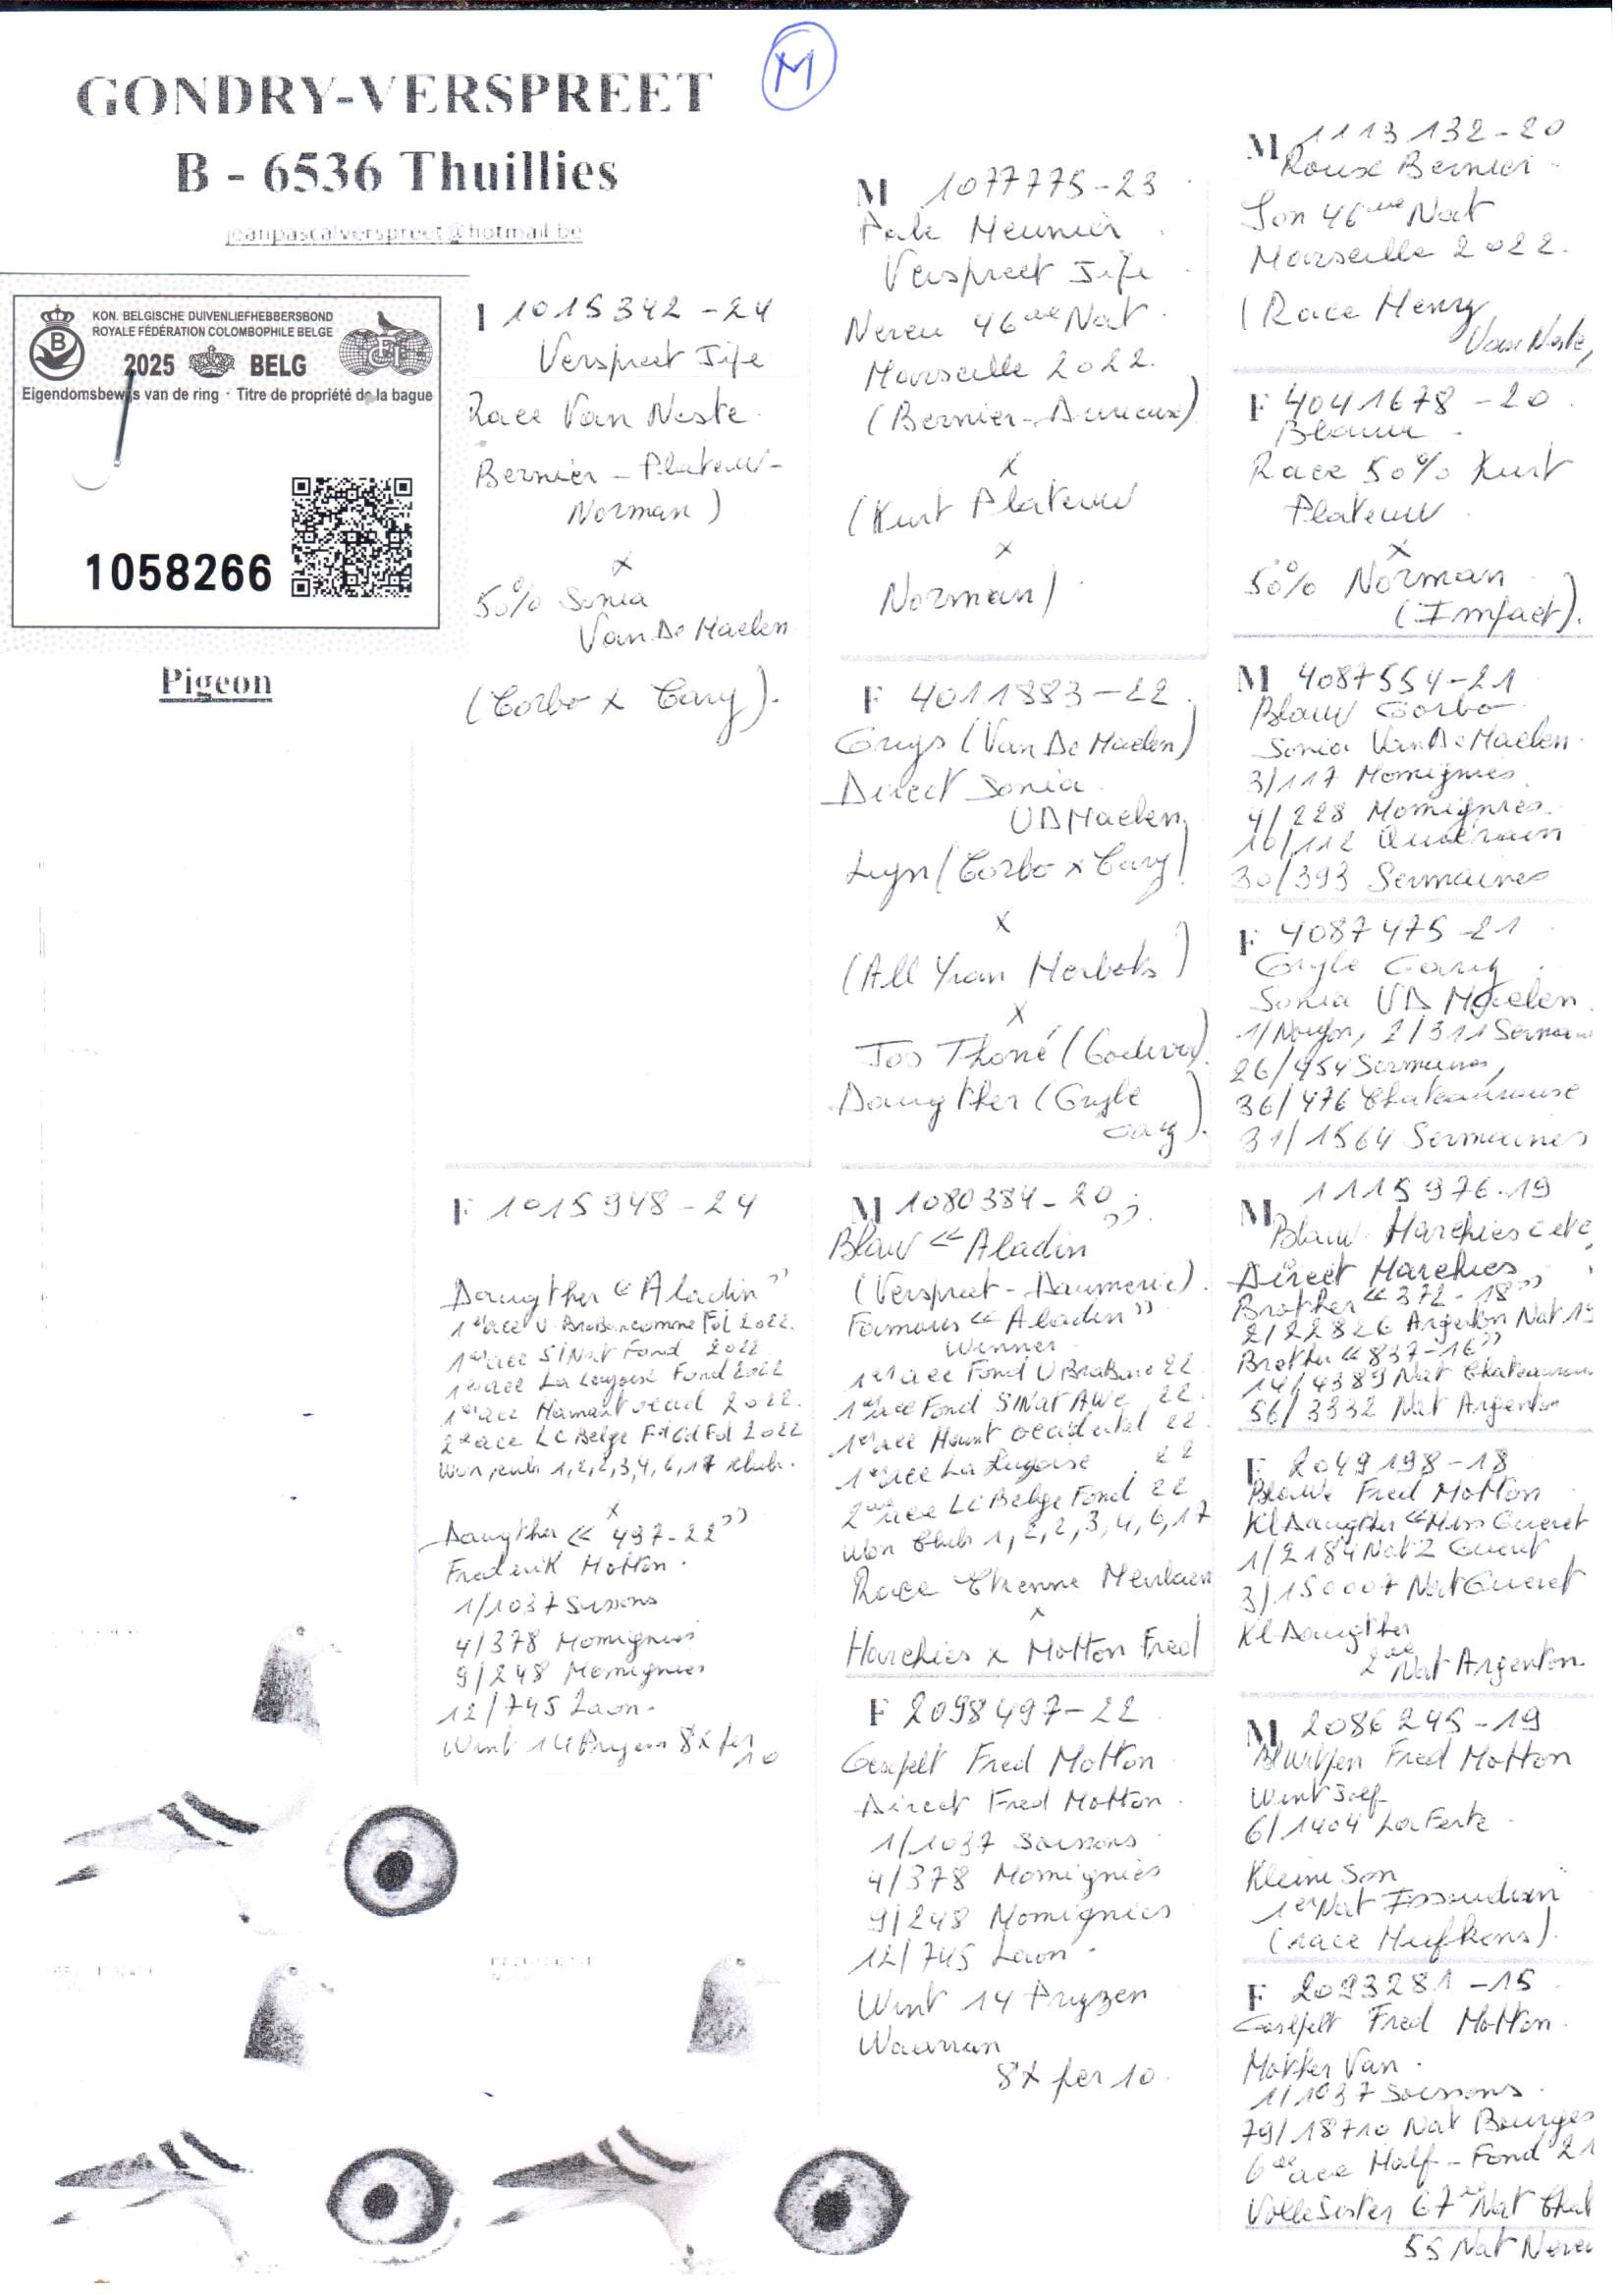 M
GONDRY-VERSPREET
B - 6536 Thuillies
jeanpascalverspreet@hotmail.be
KON. BELGISCHE DUIVENLIEFHEBBERSBOND
ROYALE FÉDÉRATION COLOMBOPHILE BELGE
2025 BELG
Eigendomsbewijs van de ring · Titre de propriété de la bague
1058266
Pigeon
1015342-24
Verspreet Jife
Race Van Neste
Bernier - Plateuw -
Norman)
x
50% Sonia
Van De Maelen
(Corbo x Cary).
F 1015948-24
Daugther « Aladin »
1er ace U Brabanconne Fd 2022.
1er ace S/Nat Fond 2022
1er ace La Legoise Fond 2022
1er ace Hainaut occid 2022.
2de ace LC Belge Fd Gd Fd 2022
Won club 1,2,2,3,4,6,17 club.
x
Daugther « 497-22 »
Frederik Motton.
1/1037
4/378 Momignies
9/248 Momignies
12/745 Laon.
Wint 14 8x per
10
M 1077775-23
Pale Meunier
Verspreet Jife
Neveu 46eme Nat
Marseille 2022.
(Bernier - )
x
(Kurt Plateuw
x
Norman)
F 4011883-22
Grijs (Van De Maelen)
Direct Sonia
VD Maelen,
Lijn (Corbo x Cary)
x
(All Yvan Herbots)
x
Jos Thoné
Daugther (Gryle
Cary).
M 1080384-20
Blauw « Aladin »
(Verspreet - Daumerie).
Famous « Aladin »
Winner
1er ace Fond U Brabanc 22
1er ace Fond S/Nat AWC 22
1er ace Hainaut occidental 22
1er ace La Legoise 22
2eme ace LC Belge Fond 22
Won Club 1, 2, 2, 3, 4, 6, 17
Race Etienne Meirlaen
x
Harchies x Motton Fred
F 2098497-22
Geschelpt Fred Motton
Direct Fred Motton
1/1037 Soissons
4/378 Momignies
9/248 Momignies
12/745 Laon
Wint 14 Pryzen
Waarvan
8x per 10
M 1113132-20
Roux Bernier
Son 46eme Nat
Marseille 2022.
(Race Henry
Van Neste,
F 4041678-20
Blauw
Race 50% Kurt
Plateuw
x
50% Norman
(Impact).
M 4087554-21
Blauw Corbo
Sonia Van De Maelen
3/117 Momignies
4/228 Momignies
10/112 Quievrain
30/393 Sermaises
F 4087475-21
Gryle Cary
Sonia VD Maelen
1/Noyon, 2/311
26/454 Sermaises,
36/476 Chateauroux
31/1564 Sermaises
M 1115976-19
Blauw Harchies
Direct Harchies
Brother « 372-18 »
2/22826 Argenton Nat 19
Brother « 837-16 »
14/4389 Nat Chateauroux
56/3332 Nat Argenton
F 2049198-18
Blauw Fred Motton
Kl Daugther « Miss Gueret
1/2184 Nat Z Gueret
3/15000 Nat Gueret
Kl Daugther
2de Nat Argenton
M 2086245-19
Fred Motton
Wint Self
6/1404 La Ferte
Kleine Son
1er Nat Issoudun
(race Hufkens).
F 2093281-15
Geschelpt Fred Motton
Mother Van
1/1037 Soissons
79/18710 Nat Bourges
6de ace Half-Fond 21
Volle Sister 67e Nat
55 Nat